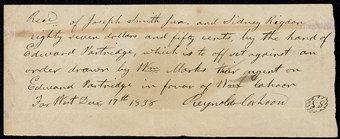 Recd of Joseph Smith Jun. and Sidney Rigdon
eighty seven dollars and fifty cents, by the hand of
Edward Partridge, which is to off set against an
order drawn by Wm Marks their agent on
Edward Partridge in favor of Wm Cahoon
Far West Dec 17th 1838. Reynold Cahoon